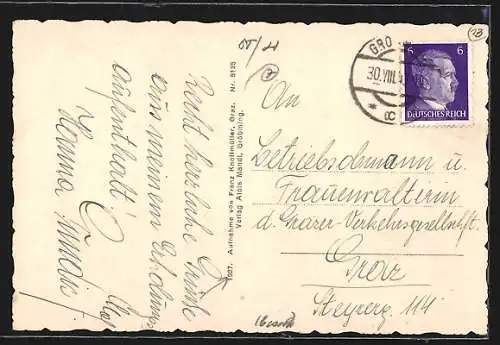 Recht herzliche Grüße
aus meinem Erholungs
aufenthalt!
Hanna
1927. Aufnahme von Franz Knollmüller, Graz. Nr. 9125
Verlag Alois Mandl, Gröbming.
GRÖ
30.VIII.
* c
6 6
DEUTSCHES REICH
An
Betriebsobmann u.
Frauenwalterin
d. Grazer-Verkehrsgesellschft.
Graz
Steyrerg. 114